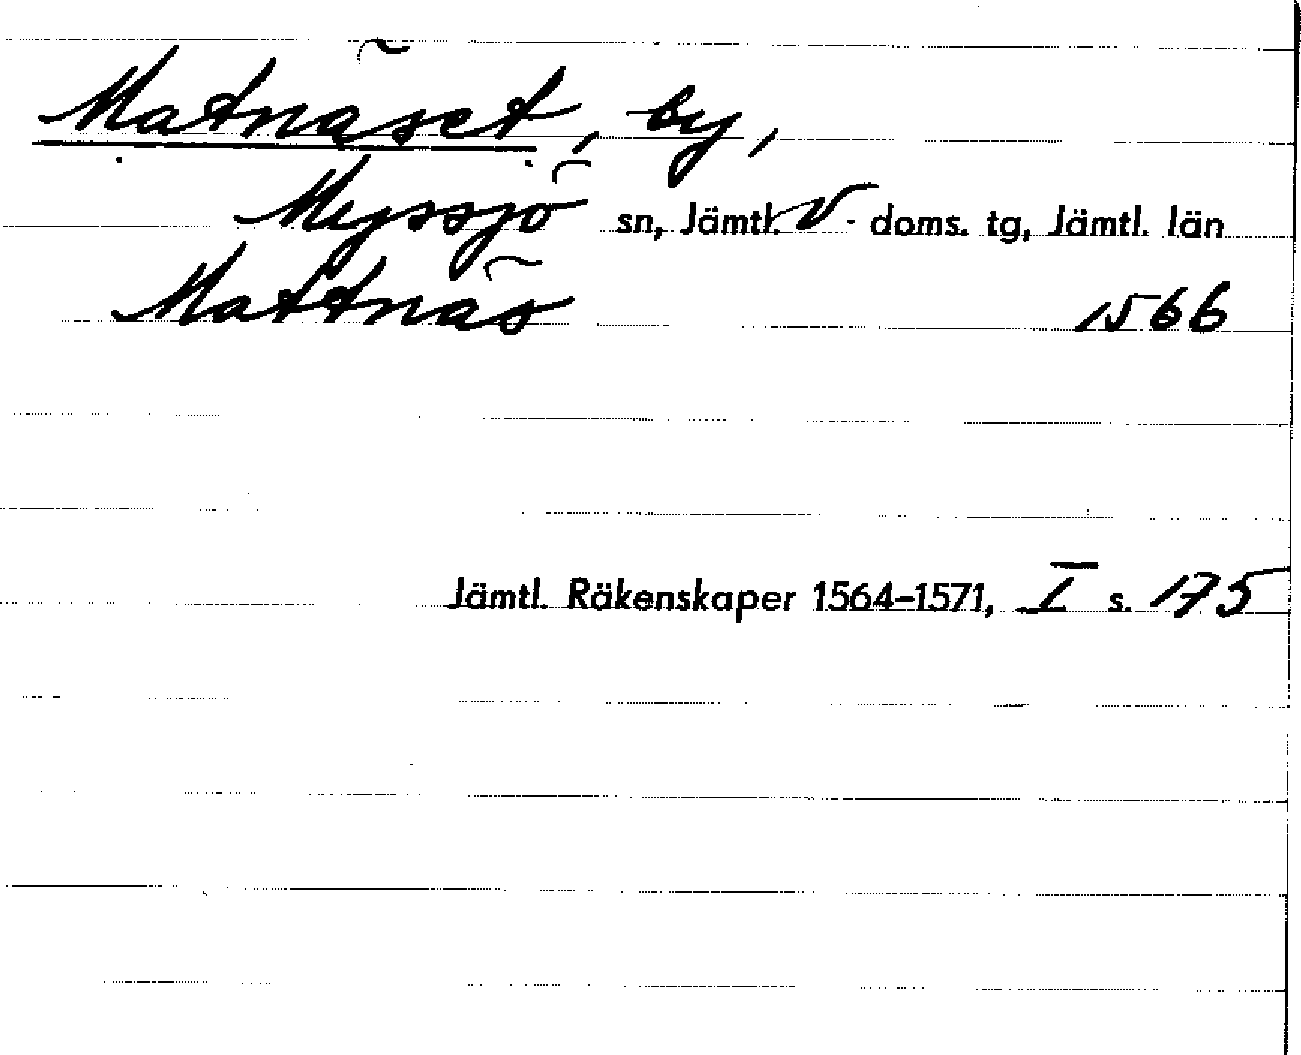 Matnäset, by,
Myssjö sn, Jämtl. V- doms. tg, Jämtl. län
Mattnäs 1566
Jämtl. Räkenskaper 1564-1571, I s. 175